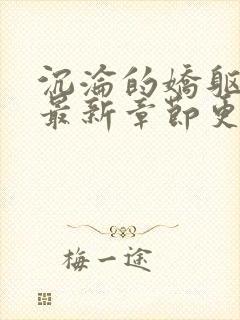 沉沦的娇躯
最新章节更
梅一途